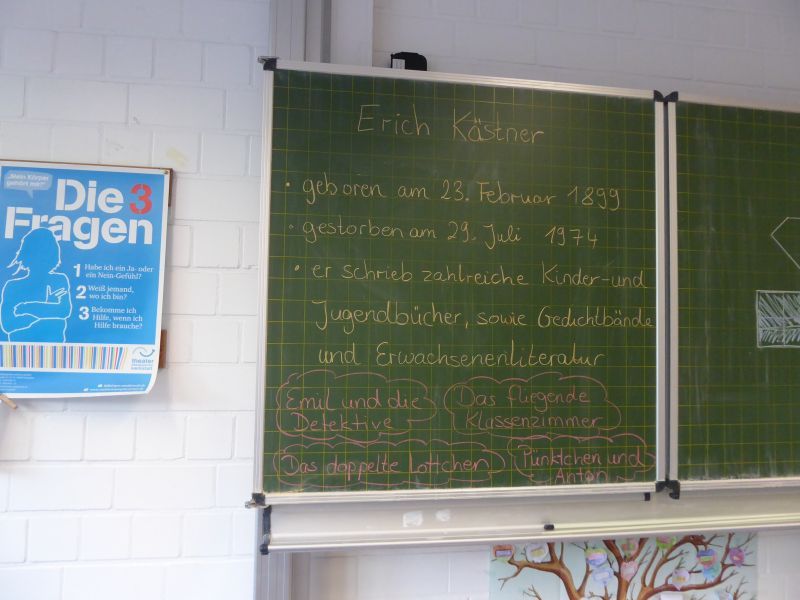 „Mein Körper
gehört mir!“
Die 3
Fragen
1 Habe ich ein Ja- oder
ein Nein-Gefühl?
2 Weiß jemand,
wo ich bin?
3 Bekomme ich
Hilfe, wenn ich
Hilfe brauche?
theater
werkstatt
Erich Kästner
• geboren am 23. Februar 1899
• gestorben am 29. Juli 1974
• er schrieb zahlreiche Kinder- und
Jugendbücher, sowie Gedichtbände
und Erwachsenenliteratur
Emil und die
Detektive
Das fliegende
Klassenzimmer
Das doppelte Lottchen
Pünktchen und
Anton